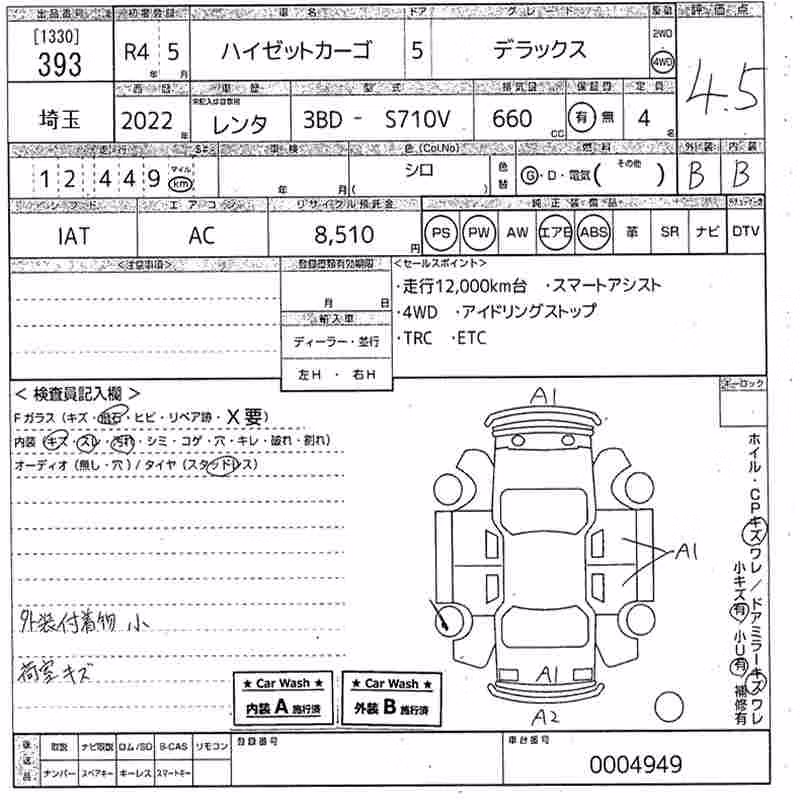 出品番号 初度登録 車名 ドア グレード 駆動 評価点
[1330]
393 R4年 5月 ハイゼットカーゴ 5 デラックス 2WD 4WD 4.5
西暦 車歴 型式 排気量 保証書 定員
未記入は自家用
埼玉 2022年 レンタ 3BD - S710V 660cc 有・無 4名
走行 S# 車検 色(Col.No) 燃料 外装 内装
12449 マイル km 年 月 シロ ( ) 色替 G・D・電気( その他 ) B B
シフト エアコン リサイクル預託金 純正装備品
IAT AC 8,510円 PS PW AW エアB ABS 革 SR ナビ DTV
<注意事項> 登録書類有効期限 <セールスポイント>
月 日
・走行12,000km台 ・スマートアシスト
・4WD ・アイドリングストップ
・TRC ・ETC
輸入車
ディーラー・並行
左H ・ 右H
キーロック
< 検査員記入欄 >
Fガラス(キズ・飛石・ヒビ・リペア跡・X要)
内装(キズ・スレ・汚れ・シミ・コゲ・穴・キレ・破れ・割れ)
オーディオ(無し・穴)/タイヤ(スタッドレス)
A1
A1
A1
A2
ホイル・CPキズワレ/ドアミラーキズワレ
小キズ有 小U有 補修有
外装付着物 小
荷室キズ
★ Car Wash ★
内装A施行済
★ Car Wash ★
外装B施行済
後送品 取説 ナビ取説 ロム/SD B-CAS リモコン 登録番号 車台番号
ナンバー スペアキー キーレス スマートキー 0004949